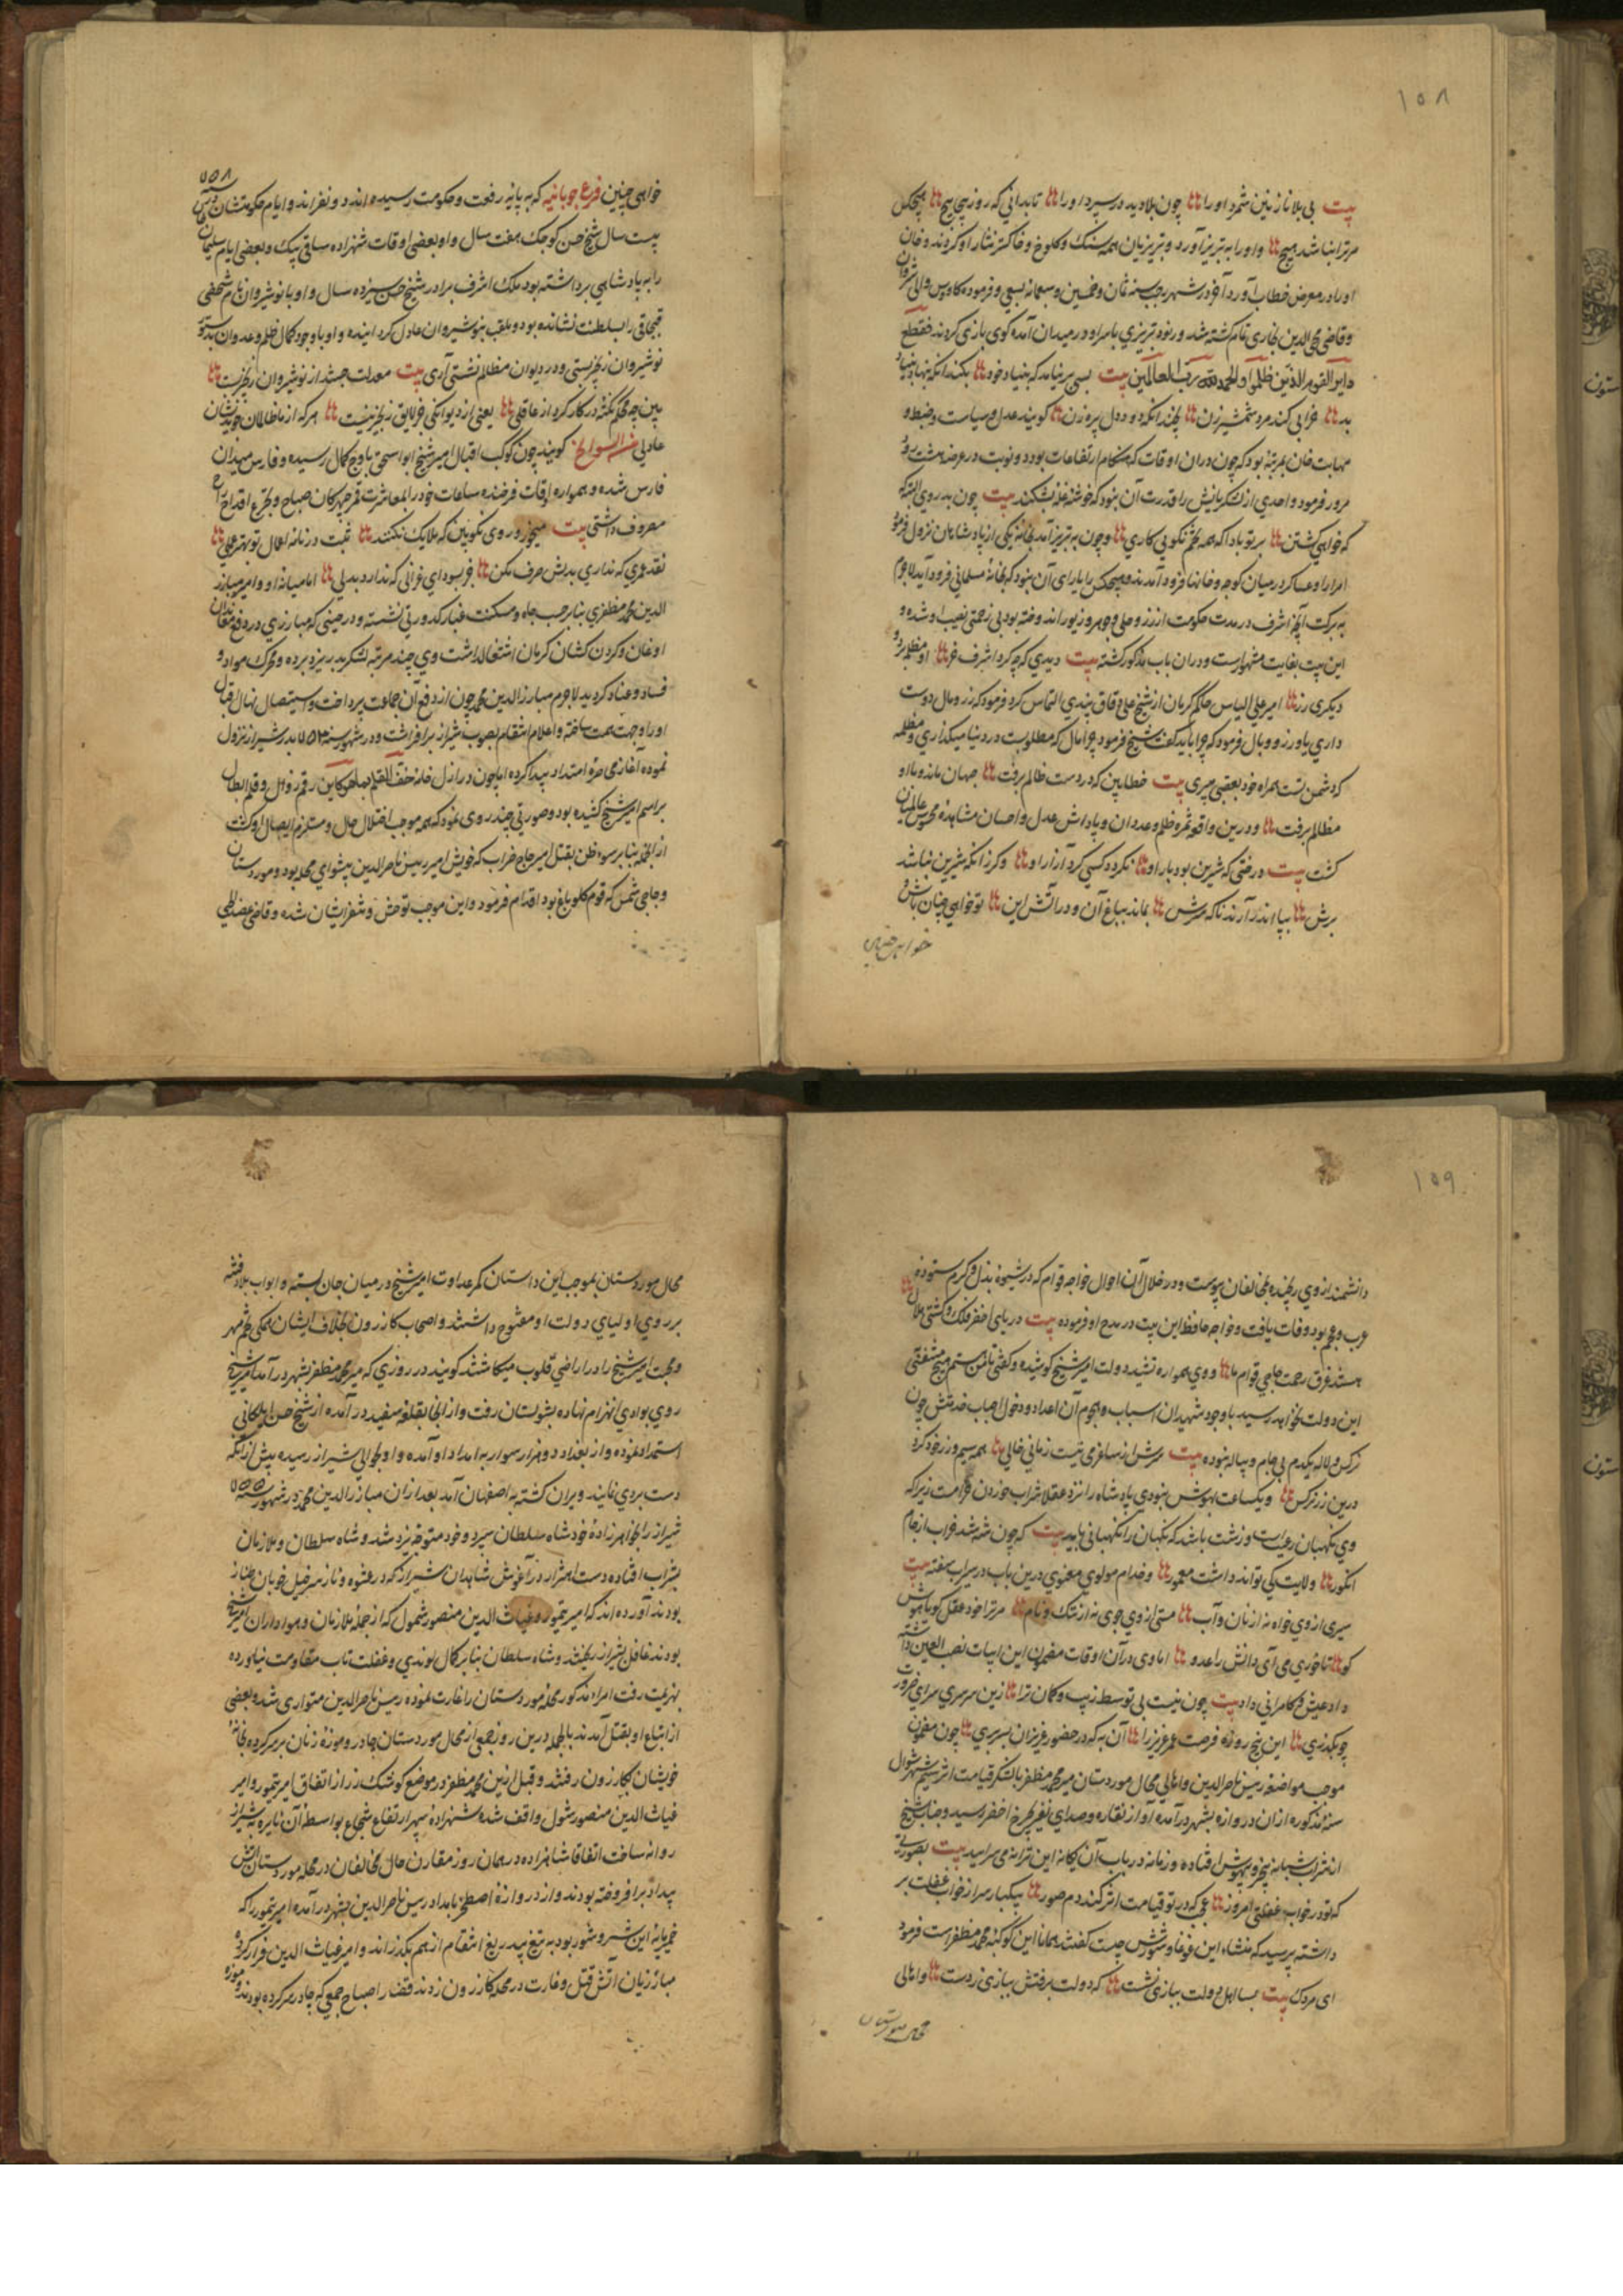 ۱۵۸
بیت بی بلا نازنین شمرد او را چون بلا دید در سپرد او را تا بدانی که روز پیچا پیچ هیچکس
مر ترا نباشد هیچ و او را به تبریز آورد و تبریزیان همه سنک و کلوخ و خاکستر نثار او کردند و خان
او را در معرض خطاب آورد آخر در شهر رجب سنه ثمان و خمسین و سبعمائه بسعی و فرموده کاوس والی شروان
و قاضی محیی الدین بخاری تمام کشته شد و رنود تبریزی با سر او در میدان آمده کوی بازی کردند فقطع
دابر القوم الذین ظلموا و الحمد لله رب العالمین بیت بسی بر نیامد که بنیاد خود بکند آنکه بنهاد بنیاد
بد خرابی کند مرد شمشیر زن نه چندانکه دود دل پیره زن کویند عدل و سیاست و ضبط و
مهابت خان بمرتبه بود که چون دران اوقات که هنکام ارتفاعات بود دو نوبت در عرض هشت روز
مرور فرمود و احدی از لشکریانش را قدرت آن نبود که خوشه غله بشکند بیت چون بد روی البته
که خواهی کشتن بر تو بادا که همه تخم نکویی کاری و چون به تبریز آمد بخانه یکی از پادشاهان نزول فرمود
امرا و عساکر در میان کوچه و خانها فرود آمدند و هیچکس را یارای آن نبود که بخانهٔ مسلمانی فرود آید لاجرم
به برکت آنچه اشرف در مدت حکومت از زر و حلی و جوهر و زیور اندوخته بود بی زحمتی نصیب او شده و
این بیت بغایت مشهور است و دران باب مذکور کشته بیت دیدی که چه کرد اشرف خر او مظلمه برد
دیکری زر امیر علی الیاس حاکم کرمان از شیخ علی دقاق پندی التماس کرد فرمود که زر و مال دوست
داری یا وزر و وبال فرمود که چرا باید کفت شیخ فرمود چرا مال که مطلوبت در دنیا میکذاری و مظلمه
که دشمن تست همراه خود بعقبی میبری بیت خطا بین که در دست ظالم برفت جهان ماند و با او
مظالم برفت و درین واقعه ثمره ظلم و عدوان و پاداش عدل و احسان مشاهدهٔ محسوس عالمیان
کشت بیت درختی که شیرین بود بار او نکردد کسی کرد آزار او و کر زانکه شیرین نباشد
برش بپا اندر آرند ناکه سرش بماند بباغ آن و در آتش این تو خواهی چنان باش و
خواهی چنین
خواهی چنین فرع چوبانیه که به پایه رفعت و حکومت رسیده اند دو نفرند و ایام حکومتشان ۷۵۸
بیست سال شیخ حسن کوچک هفت سال و او بعضی اوقات شهزاده ساقی بیک و بعضی ایام سلیمان خان
را به پادشاهی برداشته بود ملک اشرف برادر شیخ حسن سیزده سال و او با نوشیروان نام شخصی
قبچاقی را بسلطنت نشانده بود و ملقب بنوشیروان عادل کردانیده و او با وجود کمال ظلم و عدوان بدستور
نوشیروان زنجیر بستی و در دیوان مظالم نشستی آری بیت معدلت جستند از نوشیروان زنجیر بست
بین چه محکم نکته در کار کرد از عاقلی یعنی از دیوانکی جز لایق زنجیر نیست هر که از ما ظالمان جوید نشان
عادلی من السوانح کویند چون کوکب اقبال امیر شیخ ابو اسحق باوج کمال رسیده و فارس میدان
فارس شده و همواره اوقات فرخنده ساعات خود را بمعاشرت قمر چهرکان صباح و بتجرع اقداح راح
معروف داشتی بیت میخور و روی نکو بین که ملایک نکنند ثبت در نامه اعمال تو بهتر عملی
نقد عمری که نداری بدلش صرف مکن جز بسودای غزالی که ندارد بدلی اما میانه او و امیر مبارز
الدین محمد مظفری بنابر حب جاه و مسکنت غبار کدورتی نشسته و در حینی که مبارزی در دفع مغولان
اوغان و کردن کشان کرمان اشتغال داشت وی چند مرتبه لشکر بدر یزد برده و محرک مواد و
فساد و عناد کردید لاجرم مبارز الدین محمد چون از دفع آن جماعت پرداخت و استیصال نهال اقبال
او را وجهت همت ساخته و اعلام انتقام بصوب شیراز برافراشت و در شهور سنه ۷۵۳ بدر شیراز نزول
نموده آغاز محاصره امتداد پیدا کرده اما چون در ازل خامه جف القلم بما هو کاین رقم زوال و قلم ابطال
بر اسم امیر شیخ کشیده بود و صورتی چند روی نمود که همه موجب اختلال حال و مستلزم ایصال او کشت
از آنجمله بنابر سوء ظن بقتل امیر حاج ضراب که خویش امیر رییس ناصر الدین پیشوای محله بود و موردستان
و حاجی شمس که قوم کلو باغ بود اقدام فرمود و این موجب توحش و تنفر ایشان شده و قاضی عضد ایجی
۱۵۹
دانشمند از وی رنجیده بمخالفان پیوست و در خلال آن احوال خواجه قوام که در شیوه بذل و کرم ستوده
عرب و عجم بود وفات یافت و خواجه حافظ این بیت در مدح او فرموده بیت دریای اخضر فلک و کشتی هلال
هستند غرق رحمت حاجی قوام ما و وی همواره در تشیید دولت امیر شیخ کوشیده و کفتی تا من هستم هیچ مشقتی
این دولت نخواهد رسید با وجود شهیدان اسباب و هجوم آن اعداد و دخول احباب خدمتش چون
نرکس و لاله یکدم بی جام و پیاله نبوده بیت سرش از ساغر می نیست زمانی خالی همه سیم و زر خود کرد
درین زر نرکس و یکساعت بهوش نبودی پادشاه را نزد عقلا شراب خوردن حرامست زیرا که
وی نکهبان رعیت است و زشت باشد که نکهبان را نکهبانی باید بیت که چون شه شد خراب از جام
انکور ولایت کی تواند داشت معمور و خدام مولوی معنوی درین باب در سیراب سفته بیت
سیری از وی خواه نه از نان و آب مستی از وی جوی نه از بنک و نام مر ترا خود عقل کو یا هوش
کو تا خوری می آی دانش را عدو اما وی در آن اوقات مضمون این ابیات نصب العین داشته
داد عیش و کامرانی داد بیت چون نیست بی توسط زیب و کمان ترا زین سرسری سرای ضرورت
چو بکذری این پنج روزه فرصت عمر عزیز را آن به که در حضور عزیزان بسر بری چون مضمون
موجب مواضعه رییس ناصر الدین و اهالی محال موردستان میر محمد مظفر با لشکر قیامت اثر بسیم شهر شوال
سنه مذکوره از ان دروازه بشهر در آمده آواز نقاره و صدای نفیر بچرخ اخضر رسید و جناب شیخ
از شراب شبانه بیخود و بیهوش افتاده و زمانه در باب آن یکانه این ترانه می سرایید بیت بصورتی
که تو در خواب غفلتی امروز عجب که در تو قیامت اثر کند دم صور بیکبار سر از خواب غفلت بر
داشته پرسید که منشاء این غوغا و شورش چیست کفتند همانا این کوکبه محمد مظفر است فرمود
ای مردک بیت بسا اهل دولت ببازی نشست که دولت برفتش ببازی ز دست و اهالی
محال موردستان
محال موردستان بموجب این داستان کمر عداوت امیر شیخ در میان جان بسته و ابواب بلا و فتنه
بر روی اولیای دولت او مفتوح داشتند و اصحاب کازرون بخلاف ایشان همکی تخم مهر
و محبت امیر شیخ را در اراضی قلوب میکاشتند کویند در روزی که میر محمد مظفر بشهر در آمد امیر شیخ
روی بوادی انهزام نهاده بشولستان رفت و از آنجا بقلعه سفید در آمده از شیخ حسن ایلکانی
استمداد نموده و از بغداد دو هزار سوار به امداد او آمده و او بحوالی شیراز رسیده پیش از آنکه
دست بردی نمایند ویران کشته به اصفهان آمد بعد از ان مبارز الدین محمد در شهور سنه ۷۵۵
شیراز را بخواهر زادهٔ خود شاه سلطان سپرد و خود متوجه یزد شد و شاه سلطان و ملازمان
بشراب افتاده دست اهتزاز در آغوش شاهدان شیراز که در عشوه و ناز سر خیل خوبان طناز
بودند آورده اند که امیر تیمور و غیاث الدین منصور شمول که از جمله ملازمان و هواداران امیر شیخ
بودند غافل بشیراز ریختند و شاه سلطان بنابر کمال لوندی و غفلت تاب مقاومت نیاورده
بهزیمت رفت امراء مذکور محله موردستان را غارت نموده رییس ناصر الدین متواری شد و بعضی
از اتباع او بقتل آمدند بالجمله درین روز جمعی از محال موردستان چادر و موزه زنان بر سر کرده بخانهٔ
خویشان بکازرون رفتند و قبل ازین محمد مظفر در موضع کوشک زر از اتفاق امیر تیمور و امیر
غیاث الدین منصور شول واقف شده شهزادهٔ سپهر ارتفاع شجاع بواسطه آن نایره به شیراز
روانه ساخت اتفاقا شاهزاده در همان روز مقارن حال مخالفان در محله موردستان آتش
بیداد برافروخته بودند و از دروازهٔ اصطخر بامداد رییس ناصر الدین بشهر در آمده امیر تیمور را که
خمیرمایهٔ این شر و شور بود به تیغ بیدریغ انتقام از هم بکذراند و امیر غیاث الدین فرار کرد و
مبارزیان آتش قتل و غارت در محله کازرون زدند قضا را صباح جمعی که چادر سر کرده بودند و موزه